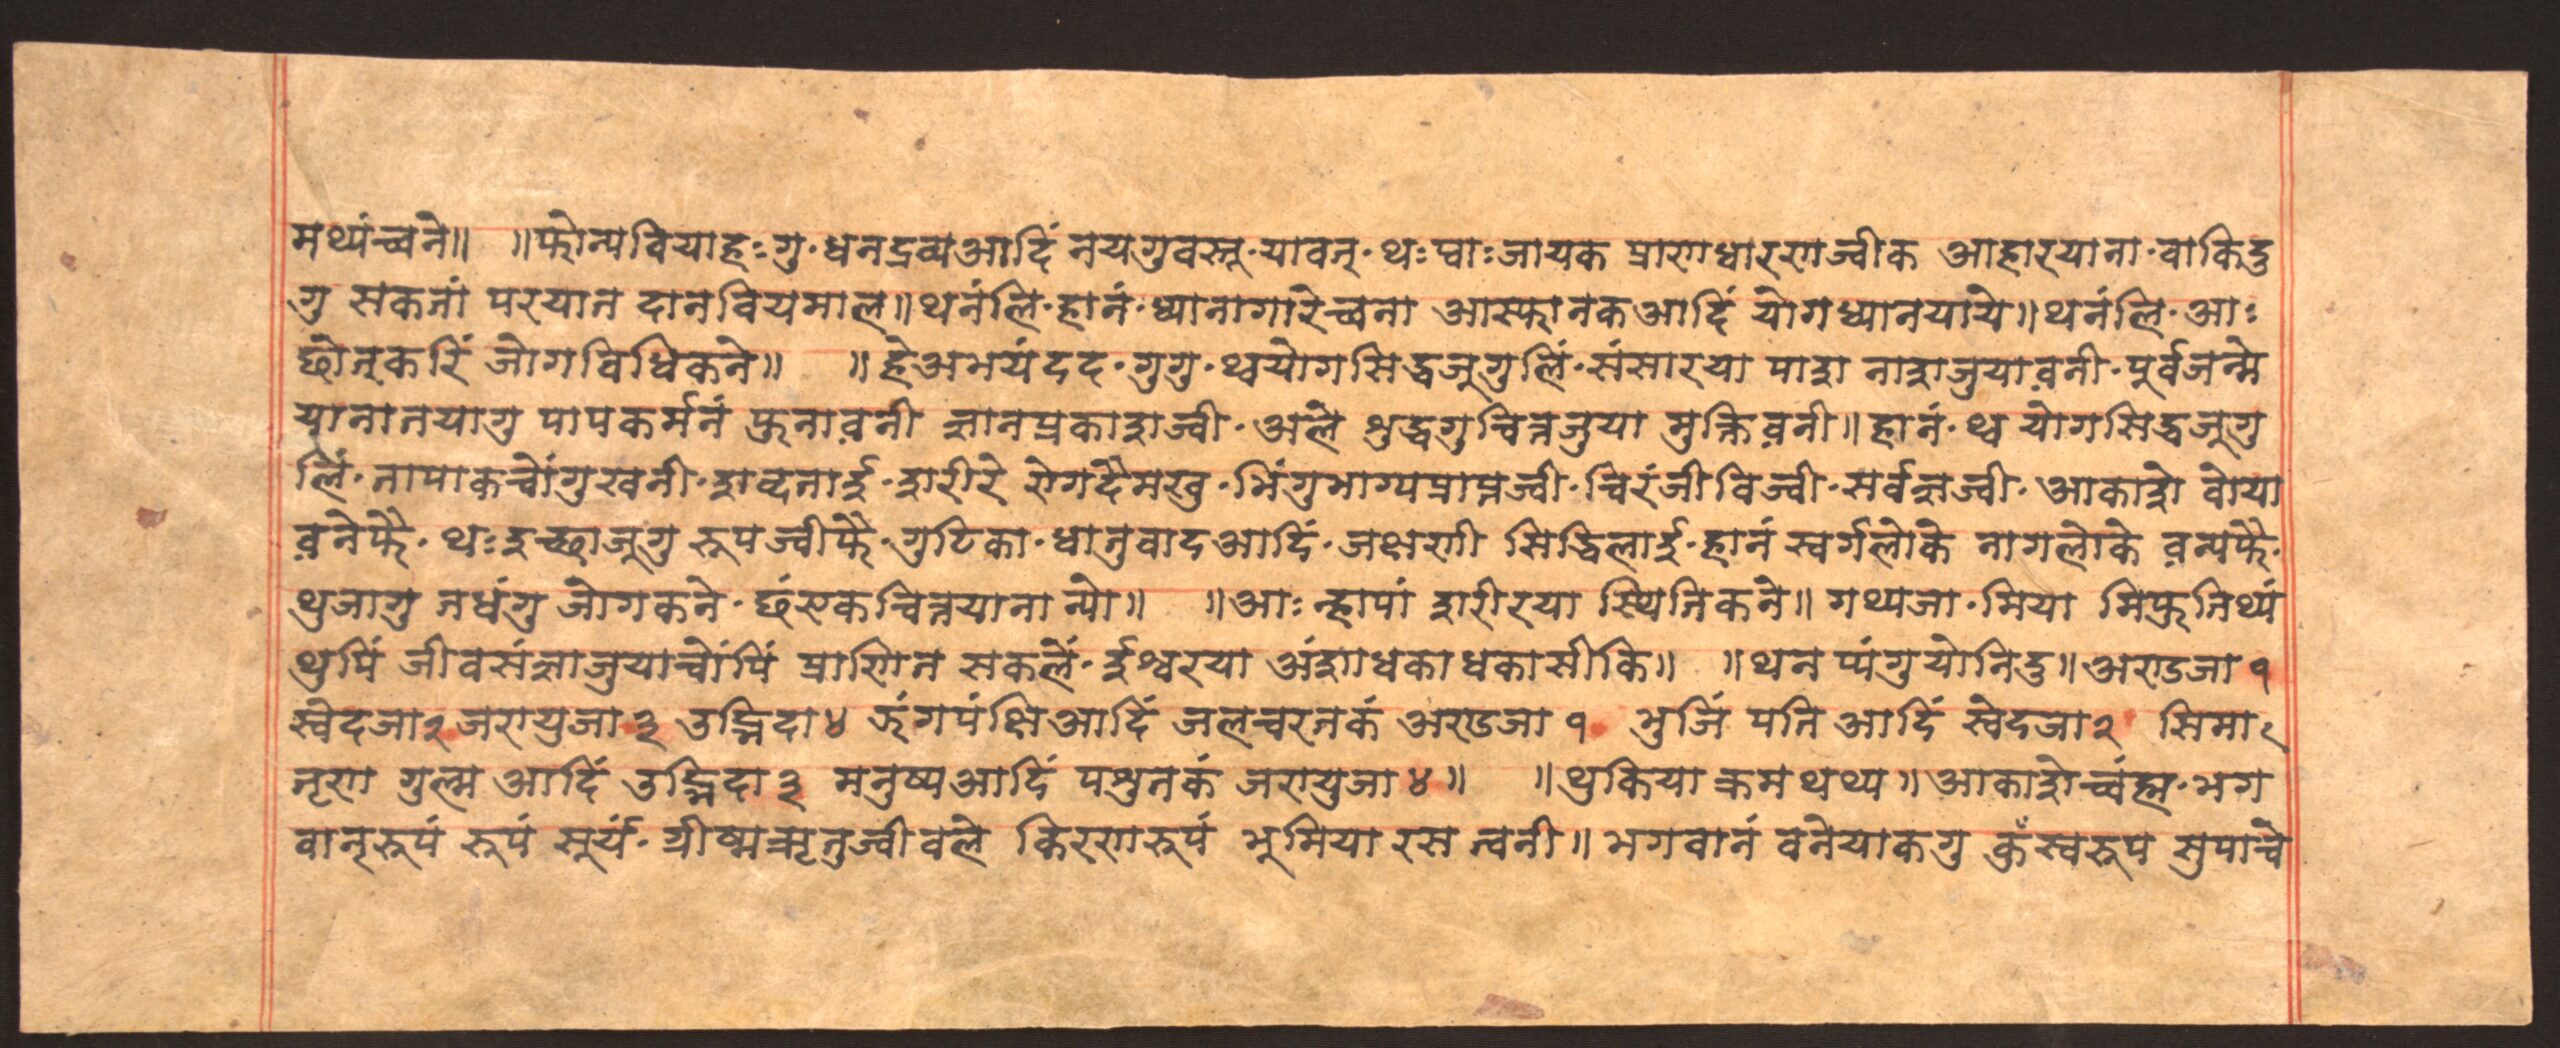 मथ्यंच्वने॥ ॥फोन्यवियाहःगु·धनद्रव्यआदिं नयगुवस्तू·यावत्·थःम्वाःजायक प्राणधारणज्वीक आहारयाना·वाकिदु
गु सकतां परयात दानवियमाल॥थनंलि·हानं·ध्यानागारेच्वना आस्फानकआदिं योगध्यानयाये॥थनंलि·आः
छोत्करिं जोगविधिकने॥ ॥हेअभयंदद·गुगु·थ्वयोगसिद्धजूगुलिं·संसारया पाश नाशजुयाव़नी·पूर्वजन्मे
यानातयागु पापकर्मनं फुनाव़नी ज्ञानप्रकाशज्वी·अले शुद्धगुचित्तजुया मुक्तिव़नी॥हानं·थ्व योगसिद्धजूगु
लिं·तापाकच्वोंगुखवनी·शब्दताई·शरीरे रोगदैमखु·भिंगुभाग्यप्राप्तज्वी·चिरंजीविज्वी·सर्वज्ञज्वी·आकाशे वोया
व़नेफै·थःइच्छाजूगु रूपज्वीफै·गुटिका·धातुवादआदिं·जक्षणी सिद्धिलाई·हानं स्वर्गलोके नागलोके व़न्यफै·
थुजागु तधंगु जोगकने·छंएकचित्तयाना न्यो॥ ॥आः न्हापां शरीरया स्थितिकने॥ गथ्यजा·मिया मिफुतिथ्यं
थुपिं जीवसंज्ञाजुयाच्वोंपिं प्राणित सकलें·ईश्वरया अंशधका धकासीकि॥ ॥थन प्यंगुयोनिदु॥अण्डजा १
स्वेदजा२ जरायुजा ३ उद्भिदा४ झंगपंक्षिआदिं जलचरतकं अण्डजा १ भुजिं पति आदिं स्वेदजा२ सिमा·
तृण गुल्म आदिं उद्भिदा ३ मनुष्यआदिं पशुतकं जरायुजा ४॥ ॥थुकिया क्रम थथ्य॥आकाशेच्वंह्म·भग
वान्रूपं रूपं सूर्यं·ग्रीष्मऋतुज्वीवले किरणरूपं भूमिया रस त्वनी॥भगवानं वनेयाकगु कुँस्वरूप सुपाचे